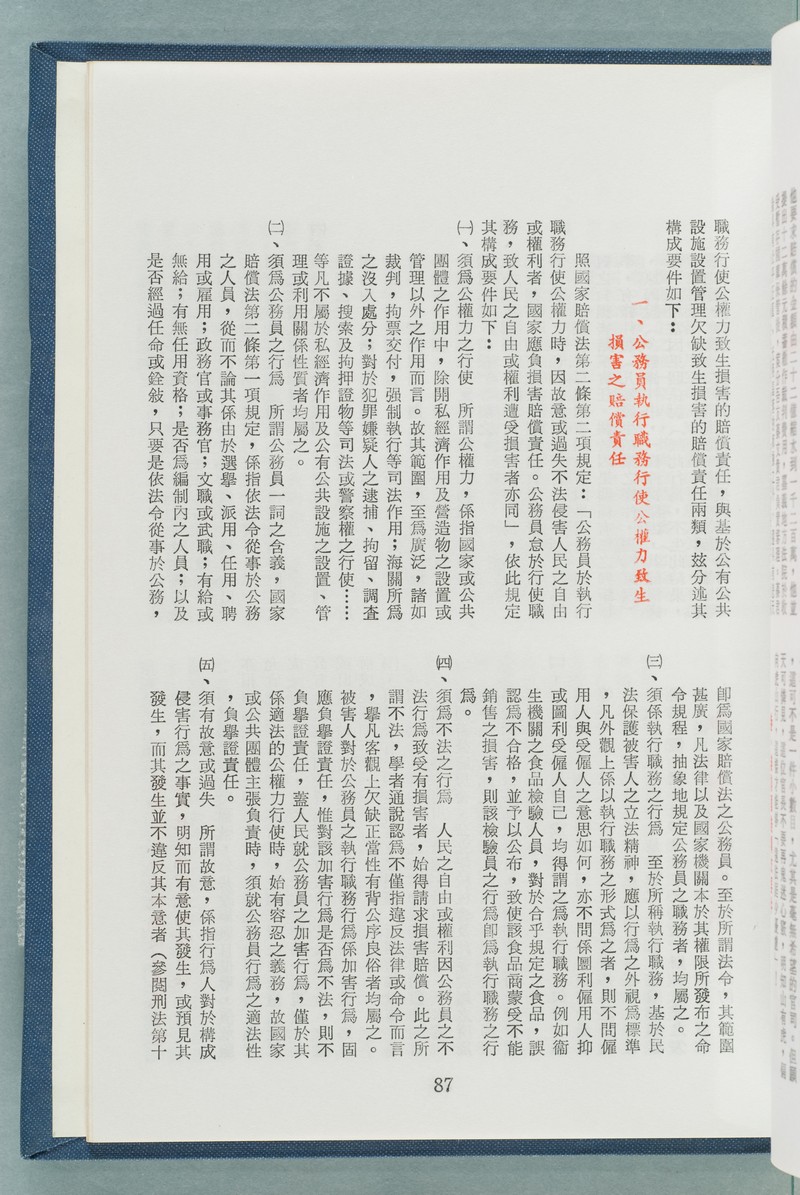 職務行使公權力致生損害的賠償責任，與基於公有公共
設施設置管理欠缺致生損害的賠償責任兩類，玆分述其
構成要件如下：
一、公務員執行職務行使公權力致生
損害之賠償責任
照國家賠償法第二條第二項規定：「公務員於執行
職務行使公權力時，因故意或過失不法侵害人民之自由
或權利者，國家應負損害賠償責任。公務員怠於行使職
務，致人民之自由或權利遭受損害者亦同」，依此規定
其構成要件如下：
㈠、須爲公權力之行使　所謂公權力，係指國家或公共
團體之作用中，除開私經濟作用及營造物之設置或
管理以外之作用而言。故其範圍，至爲廣泛，諸如
裁判，拘票交付，强制執行等司法作用；海關所爲
之沒入處分；對於犯罪嫌疑人之逮捕、拘留、調查
證據、搜索及拘押證物等司法或警察權之行使……
等凡不屬於私經濟作用及公有公共設施之設置、管
理或利用關係性質者均屬之。
㈡、須爲公務員之行爲　所謂公務員一詞之含義，國家
賠償法第二條第一項規定，係指依法令從事於公務
之人員，從而不論其係由於選舉、派用、任用、聘
用或雇用；政務官或事務官；文職或武職；有給或
無給；有無任用資格；是否爲編制內之人員；以及
是否經過任命或銓敍，只要是依法令從事於公務，
卽爲國家賠償法之公務員。至於所謂法令，其範圍
甚廣，凡法律以及國家機關本於其權限所發布之命
令規程，抽象地規定公務員之職務者，均屬之。
㈢、須係執行職務之行爲　至於所稱執行職務，基於民
法保護被害人之立法精神，應以行爲之外視爲標準
，凡外觀上係以執行職務之形式爲之者，則不問僱
用人與受僱人之意思如何，亦不問係圖利僱用人抑
或圖利受僱人自己，均得謂之爲執行職務。例如衞
生機關之食品檢驗人員，對於合乎規定之食品，誤
認爲不合格，並予以公布，致使該食品商蒙受不能
銷售之損害，則該檢驗員之行爲卽爲執行職務之行
爲。
㈣、須爲不法之行爲　人民之自由或權利因公務員之不
法行爲致受有損害者，始得請求損害賠償。此之所
謂不法，學者通說認爲不僅指違反法律或命令而言
，舉凡客觀上欠缺正當性有背公序良俗者均屬之。
被害人對於公務員之執行職務行爲係加害行爲，固
應負舉證責任，惟對該加害行爲是否爲不法，則不
負舉證責任，蓋人民就公務員之加害行爲，僅於其
係適法的公權力行使時，始有容忍之義務，故國家
或公共團體主張負責時，須就公務員行爲之適法性
，負舉證責任。
㈤、須有故意或過失　所謂故意，係指行爲人對於構成
侵害行爲之事實，明知而有意使其發生，或預見其
發生，而其發生並不違反其本意者（參閱刑法第十
87